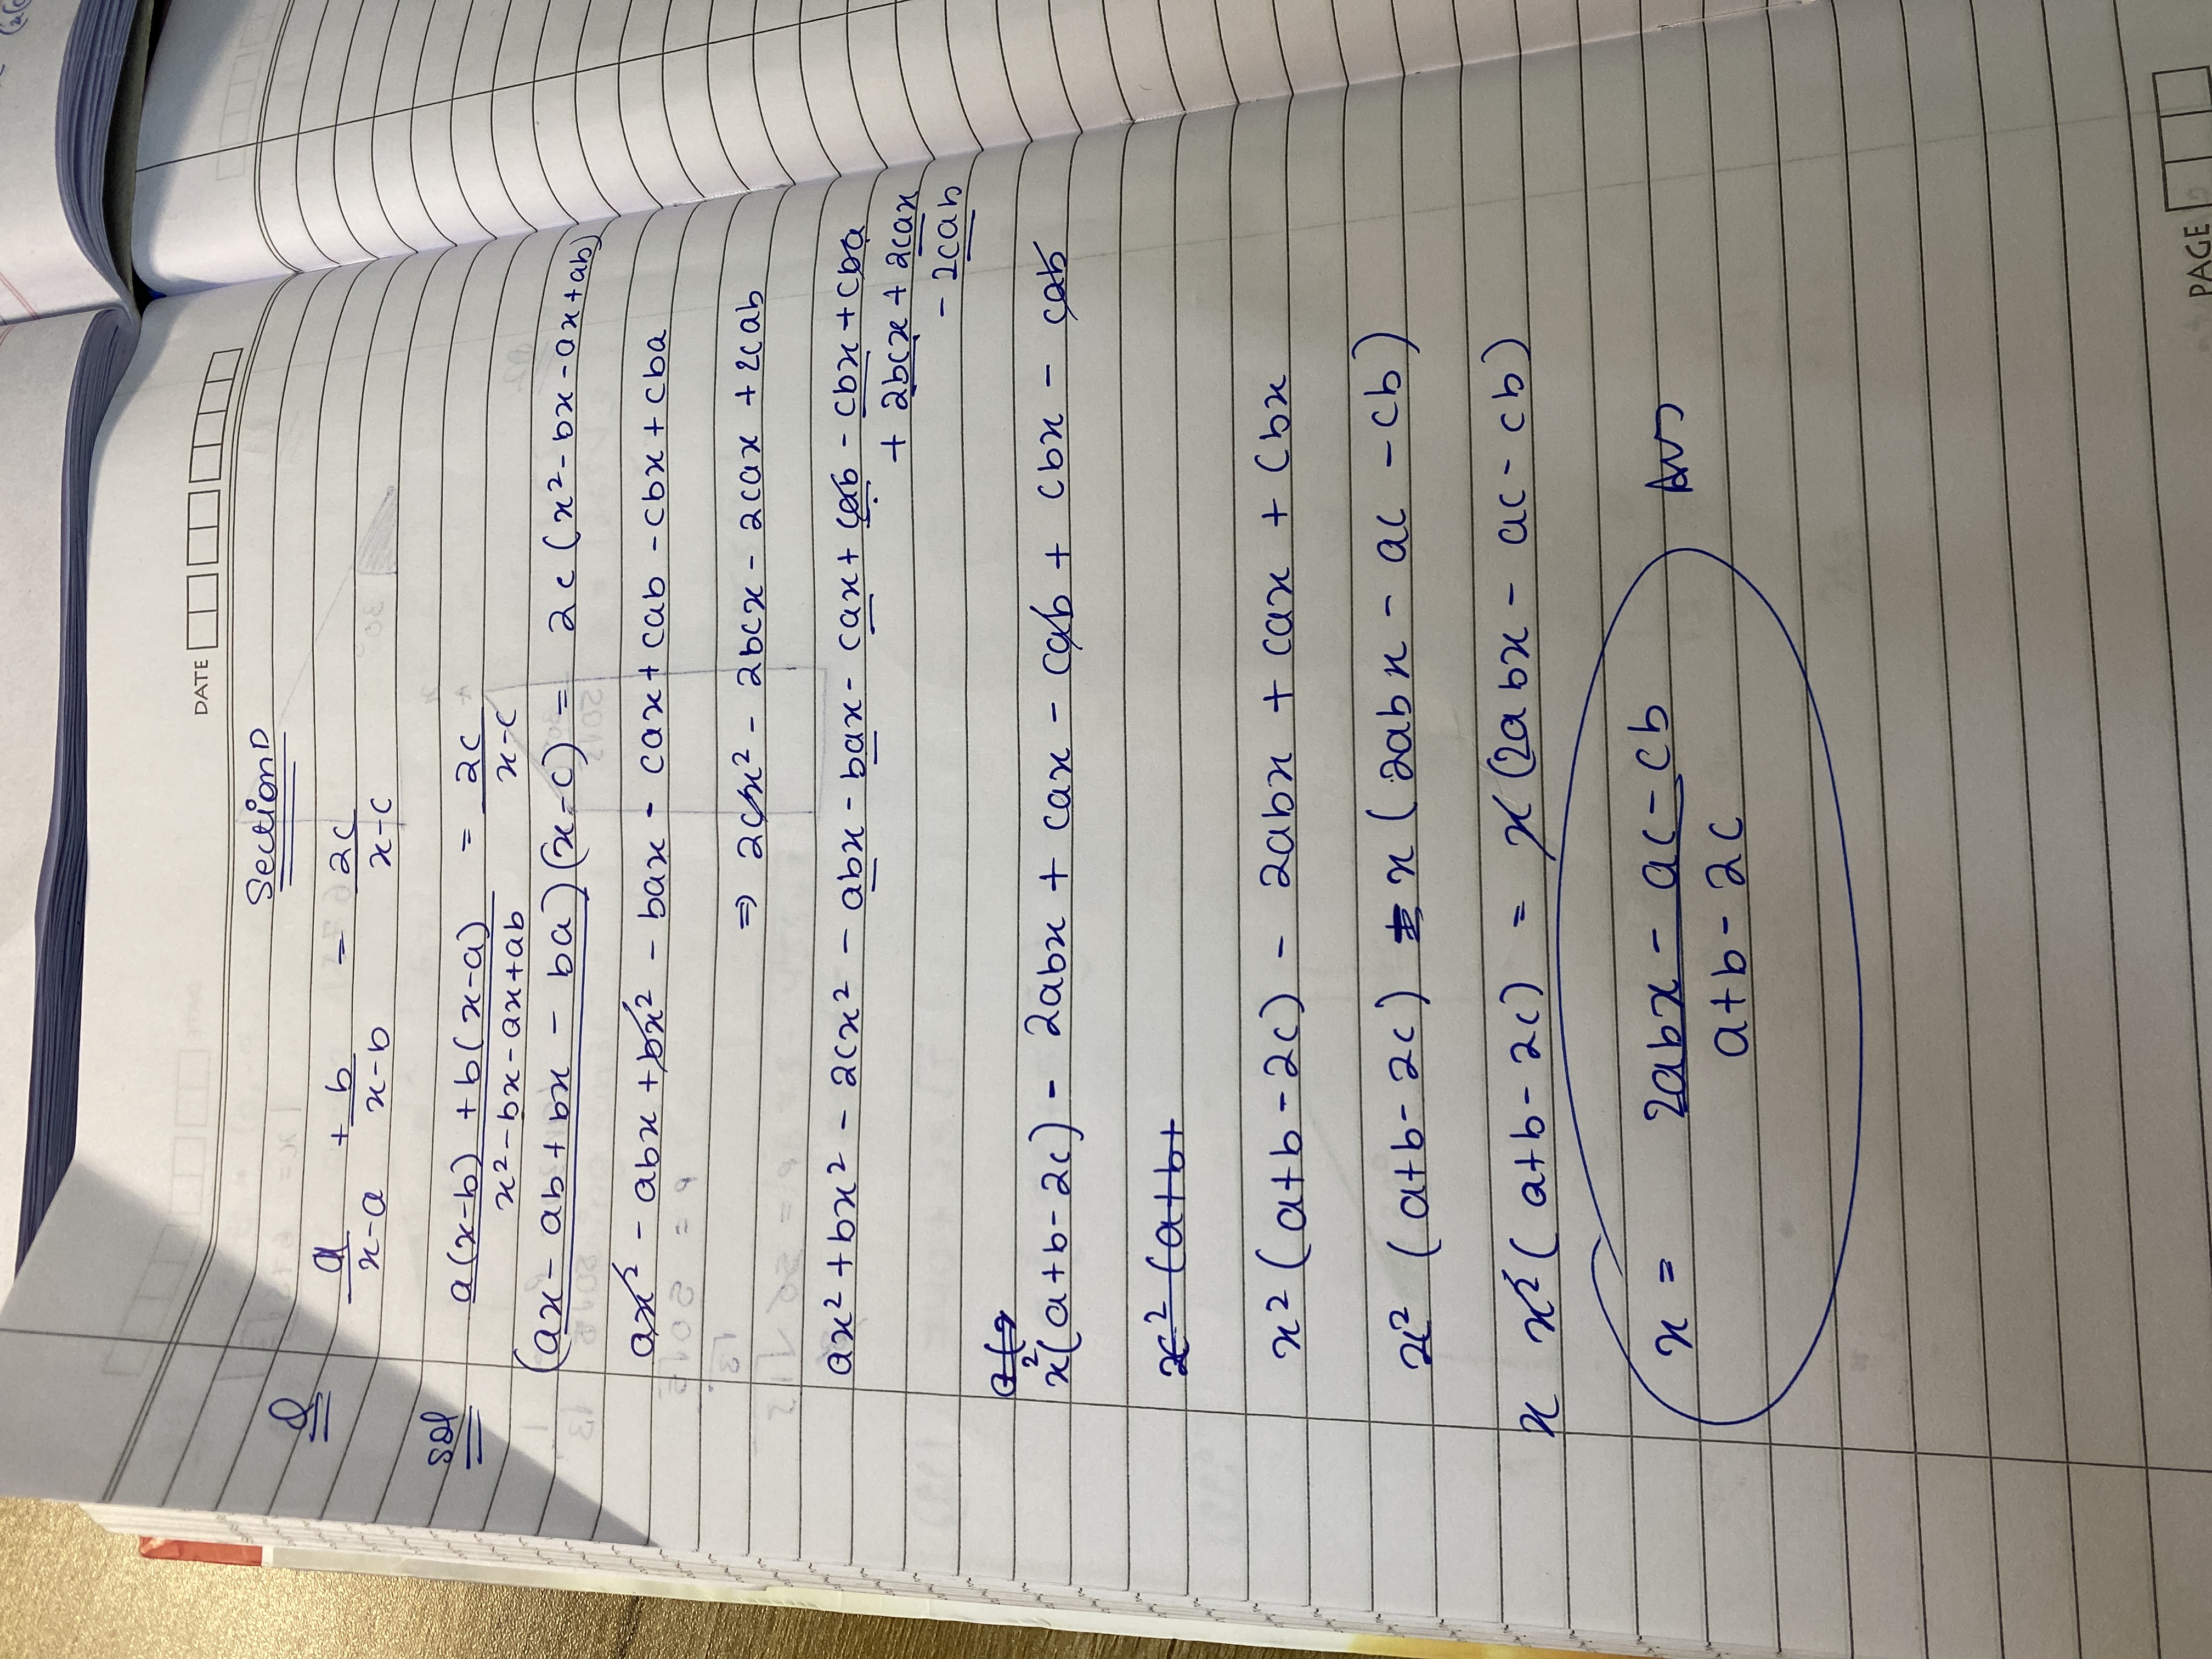 DATE
Section D
Q a/x-a + b/x-b = 2c/x-c
Sol a(x-b) + b(x-a)/x²-bx-ax+ab = 2c/x-c
(ax - ab + bx - ba)(x-c) = 2c(x²-bx-ax+ab)
ax² - abx + bx² - bax - cax + cab - cbx + cba
⇒ 2cx² - 2bcx - 2cax + 2cab
ax² + bx² - 2cx² - abx - bax - cax + cab - cbx + cba
+ 2bcx + 2cax
- 2cab
x²(a+b-2c) - 2abx + cax - cab + cbx - cab
x² (a+b+
x² (a+b-2c) - 2abx + cax + cbx
x² (a+b-2c) = x (2abx - ac - cb)
x x² (a+b-2c) = x (2abx - ac - cb)
x = 2abx - ac - cb/a+b-2c Ans
PAGE